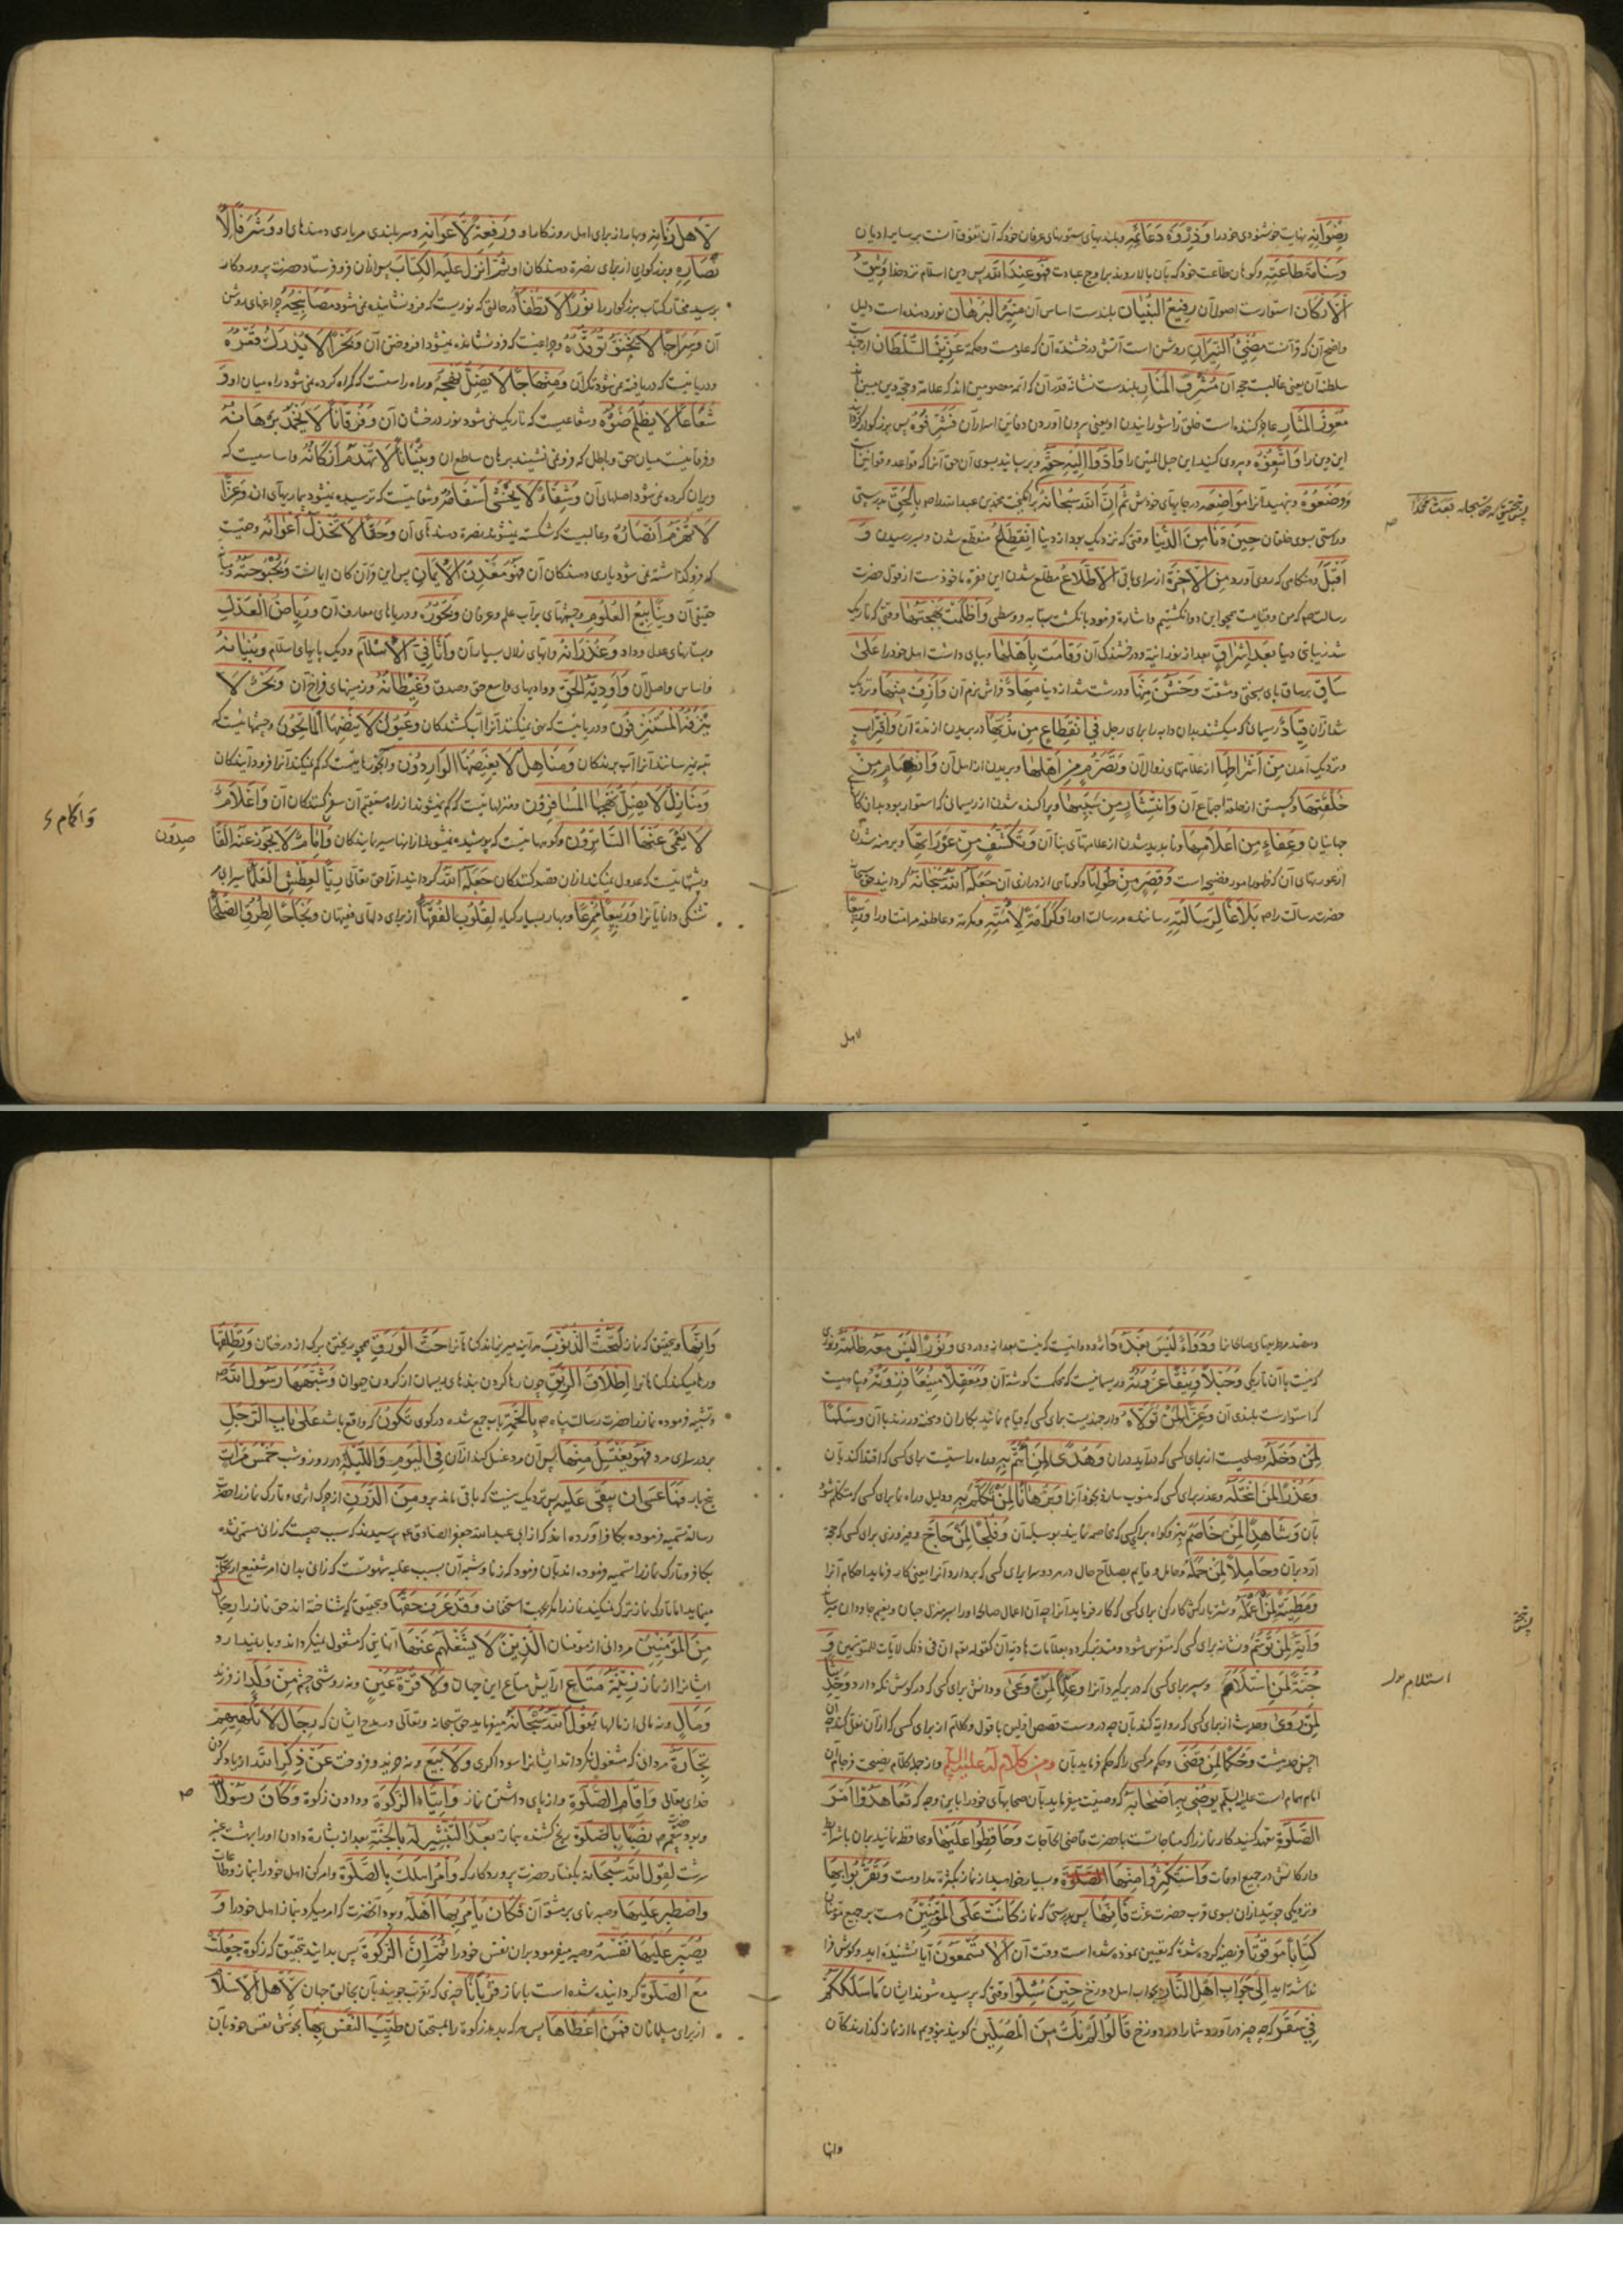 رِضْوَانِهِ نهایت خوشنودی خود را وَذِرْوَةَ دَعَائِمِهِ و بلندیهای ستونهای عرفان خود که آن تفوق آنست بر سایر ادیان
وَسَنَامَ طَاعَتِهِ و کوهان طاعت خود که بآن بالا روند براوج عبادت فَهُوَ عِنْدَ اللّٰهِ پس دین اسلام نزد خدا وَثِيقُ
الْاَرْكَانِ استوارست اصول آن رَفِيعُ الْبُنْيَانِ بلندست اساس آن مُنِيرُ الْبُرْهَانِ نور دهنده است دلیل
واضح آن که قرآنست مُضِيءُ النِّيرَانِ روشن است آتش درخشنده آن که علومست و حکمة عَزِيزُ السُّلْطَانِ ارجمند
سلطنة آن یعنی غالبست حجة آن مُشْرِفُ الْمَنَارِ بلندست نشانه قدر آن که ائمه معصومین اند که علامة و حجة دین مبین
مُعْوِزُ الْمَثَارِ عاجز کننده است خلق را شورانیدن او یعنی بیرون آوردن دفاین اسرار آن فَشَرِّفُوهُ پس بزرگوار
این دین را وَاتَّبِعُوهُ و پیروی کنید این حبل المتین را وَاَدُّوا اِلَيْهِ حَقَّهُ و برسانید بسوی آن حق آنرا که قواعد و قوانین
وَضَعُوهُ و بنهید آنرا مَوَاضِعَهُ در جایهای خودش ثُمَّ اِنَّ اللّٰهَ سُبْحَانَهُ برانگیخت محمد بن عبد الله را ص بِالْحَقِّ بدرستی
پس بتحقیق که حق سبحانه بَعَثَ مُحَمَّدًا
و راستی بسوی خلقان حِينَ دَنَا مِنَ الدُّنْيَا وقتی که نزدیک بود از دنیا الْاِنْقِطَاعُ منقطع شدن و بسر رسیدن وَ
اَقْبَلَ و هنگامی که روی آورد مِنَ الْاٰخِرَةِ از سرای باقی الْاِطِّلَاعُ مطلع شدن این فقره ماخوذست از قول حضرت
رسالت صلعم که من و قیامت همچو این دو انگشتیم و اشارة فرمود بانگشت سبابه و وسطی وَاَظْلَمَتْ بَهْجَتُهَا وقتی که تاریک
شد زیبای دنیا بَعْدَ اِشْرَاقٍ بعد از نورانیة و درخشندگی آن وَقَامَتْ بِاَهْلِهَا و بپای داشت اهل خود را عَلٰى
سَاقٍ بر ساق پای سختی و مشقت وَخَشُنَ مِنْهَا و درشت شد از دنیا مِهَادٌ فراش نرم آن وَاَزِفَ مِنْهَا و نزدیک
شد از آن قِيَادٌ ریسمانی که میکشند بدان دابه را برای رحیل فِي انْقِطَاعٍ مِنْ مُدَّتِهَا در بریدن از مدة آن وَاقْتِرَابٍ
و نزدیک آمدن مِنْ اَشْرَاطِهَا از علامتهای زوال آن وَتَصَرُّمٍ مِنْ اَهْلِهَا و بریدن از اهل آن وَانْفِصَامٍ مِنْ
حَلْقَتِهَا و گسستن از حلقه اجماع آن وَانْتِشَارٍ مِنْ سَبَبِهَا و پراکنده شدن از ریسمانی که استوار بود بدان
جهانیان وَعَفَاءٍ مِنْ اَعْلَامِهَا و ناپدید شدن از علامتهای بنا آن وَتَكَشُّفٍ مِنْ عَوْرَاتِهَا و برهنه شدن
از عورتهای آن که ظهور امور فضیحه است وَقِصَرٍ مِنْ طُولِهَا و کوتاهی از درازی آن جَعَلَهُ اللّٰهُ سُبْحَانَهُ گردانید
حضرت رسالت را ص بَلَاغًا لِرِسَالَتِهِ رساننده مر رسالت او را وَكَرَامَةً لِاُمَّتِهِ و مکرمة و عاطفه مر امت او را وَرَبِيعًا
لاهل
لِاَهْلِ زَمَانِهِ و بهار از برای اهل روزگار او وَرِفْعَةً لِاَعْوَانِهِ و سر بلندی مر یاری دهندهای او وَشَرَفًا لِاَ
نْصَارِهِ و بزرگواری از برای نصرة دهندگان او ثُمَّ اَنْزَلَ عَلَيْهِ الْكِتَابَ پس از آن فرو فرستاد حضرت پروردگار
بر سید مختار کتاب بزرگوار را نُورًا لَا تُطْفَأُ در حالتی که نوریست که فرو نشانیده نمی شود مَصَابِيحُهُ چراغهای روشن
آن وَسِرَاجًا لَا يَخْبُو تَوَقُّدُهُ و چراغیست که فرو نشانده نمیشود افروختن آن وَبَحْرًا لَا يُدْرَكُ قَعْرُهُ
و دریائیست که دریافته نمی شود تک آن وَمِنْهَاجًا لَا يُضِلُّ نَهْجُهُ و راه راستست که گمراه کرده نمی شود راه میان او وَ
شُعَاعًا لَا يُظْلِمُ ضَوْءُهُ و شعاعیست که تاریک نمی شود نور درخشان آن وَفُرْقَانًا لَا يُخْمَدُ بُرْهَانُهُ
و فرقانیست میان حق و باطل که فرو نمی نشیند برهان ساطع آن وَبُنْيَانًا لَا تُهْدَمُ اَرْكَانُهُ و اساسیست که
ویران کرده نمی شود اصلهای آن وَشِفَاءً لَا تُخْشٰى اَسْقَامُهُ و شفائیست که ترسیده نمیشود بیماریهای آن وَعِزًّا
لَا تُهْزَمُ اَنْصَارُهُ و غالبیست که شکسته نمیشوند نصرة دهندهای آن وَحَقًّا لَا تُخْذَلُ اَعْوَانُهُ و حقیست
که فرو گذاشته نمی شود یاری دهندگان آن فَهُوَ مَعْدِنُ الْاِيْمَانِ پس این قرآن کان ایمانست وَبُحْبُوحَتُهُ و میان
حقیقی آن وَيَنَابِيعُ الْعُلُومِ و چشمهای پر آب علم و عرفان وَبُحُورُهُ و دریاهای معارف آن وَرِيَاضُ الْعَدْلِ
و بستانهای عدل و داد وَغُدْرَانُهُ و آبهای زلال بسیار آن وَاَثَافِيُّ الْاِسْلَامِ و دیک پایهای اسلام وَبُنْيَانُهُ
و اساس و اصل آن وَاَوْدِيَةُ الْحَقِّ و وادیهای واسع حق و صدق وَغِيطَانُهُ و زمینهای فراخ آن وَبَحْرٌ لَا
يَنْزِفُهُ الْمُسْتَنْزِفُونَ و دریائیست که تهی نمیکنند آنرا آب کشندگان وَعُيُونٌ لَا يُنْضِبُهَا الْمَاتِحُونَ و چشمهائیست که
بته نمیرسانند آنرا آب برندگان وَمَنَاهِلُ لَا يَغِيضُهَا الْوَارِدُونَ و آبخورهائیست که کم نمیکند آنرا فرود آیندگان
وَمَنَازِلُ لَا يَضِلُّ نَهْجَهَا الْمُسَافِرُونَ و منزلهائیست که گم نمیشوند از راه مستقیم آن سفر کنندگان آن وَاَعْلَامٌ
لَا يَعْمٰى عَنْهَا السَّائِرُونَ و کوههائیست که پوشیده نمیشود از آنها سیر نمایندگان وَاِكَامٌ لَا يَجُوزُ عَنْهَا الْقَا
صِدُونَ
وَاٰكَامٌ
و پشتهائیست که عدول نمیکنند از آن قصد کنندگان جَعَلَهُ اللّٰهُ گردانید آنرا حق تعالی رِيًّا لِعَطَشِ الْعُلَمَاءِ سیرابی
تشنگی دانایانرا وَرَبِيعًا مُمْرِعًا و بهار بسیار گیاه لِقُلُوبِ الْفُقَهَاءِ از برای دلهای فقیهان وَمَحَاجًّا لِطُرُقِ الصُّلَحَاءِ
و مقصد مر راههای صالحانرا وَدَوَاءً لَيْسَ بَعْدَهُ دَاءٌ و دوائیست که نیست بعد از او دردی وَنُورًا لَيْسَ مَعَهُ ظُلْمَةٌ و نوری
که نیست با آن تاریکی وَحَبْلًا وَثِيقًا عُرْوَتُهُ و ریسمانیست که محکمست گوشه آن وَمَعْقِلًا مَنِيعًا ذِرْوَتُهُ و پناهیست
که استوارست بلندی آن وَعِزًّا لِمَنْ تَوَلَّاهُ و ارجمندیست برای کسی که قیام نماید بکار آن و محبة ورزد با آن وَسِلْمًا
لِمَنْ دَخَلَهُ و صلحیست از برای کسی که درآید در آن وَهُدًى لِمَنِ ائْتَمَّ بِهِ و راه راستیست برای کسی که اقتدا کند بآن
وَعُذْرًا لِمَنِ انْتَحَلَهُ و عذر برای کسی که منسوب سازد بخود آنرا وَبُرْهَانًا لِمَنْ تَكَلَّمَ بِهِ و دلیل و راه نما برای کسی که متکلم شود
بآن وَشَاهِدًا لِمَنْ خَاصَمَ بِهِ و گواه برای کسی که مخاصمه نماید بوسیله آن وَفَلْجًا لِمَنْ حَاجَّ و فیروزی برای کسی که حجة
آرد بر آن وَحَامِلًا لِمَنْ حَمَلَهُ و حامل و قایم بصلاح حال در هر دو سرا برای کسی که بردارد آنرا یعنی کار فرماید احکام آنرا
وَمَطِيَّةً لِمَنْ اَعْمَلَهُ و شتر بارکش کارکن برای کسی که کار فرماید آنرا چه آن اعمال صالحه او را بسر منزل جنان و نعیم جاودان
وَاٰيَةً لِمَنْ تَوَسَّمَ و نشانه برای کسی که متفرس شود و متدبر گردد بعلامات هادیه آن کقوله تعالی ان فی ذلک لآیات للمتوسمین وَ
جُنَّةً لِمَنِ اسْتَلْاَمَ و سپر برای کسی که در بر گیرد آنرا وَعِلْمًا لِمَنْ وَعٰى و دانش برای کسی که در گوش نگه دارد وَحَدِيثًا
استلام
لِمَنْ رَوٰى و حدیث از برای کسی که روایة کند بآن چه دروست قصص اولین یا قول و کلام از برای کسی که از آن نقل کند چه آن
احسن حدیثست وَحُكْمًا لِمَنْ قَضٰى و حکم مر کسی را که حکم فرماید بآن ومن كلام له عليه السلم و از جمله کلام نصیحت فرجام آن
امام همام است علیه السلم يُوصِي بِهِ اَصْحَابَهُ که وصیت میفرماید بآن صحابهای خود را باین وجه که تَعَاهَدُوا اَمْرَ
الصَّلٰوةِ تعهد کنید کار نماز را که مناجاتست با حضرت قاضی الحاجات وَحَافِظُوا عَلَيْهَا و محافظه نمائید بر آن باشرایط
و ارکانش در جمیع اوقات وَاسْتَكْثِرُوا مِنْهَا و بسیار خواهید از نماز بکثرة مداومت وَتَقَرَّبُوا بِهَا
و نزدیکی جوئید از آن بسوی قرب حضرت عزت فَاِنَّهَا پس بدرستی که نماز كَانَتْ عَلَى الْمُؤْمِنِينَ هست بر جمیع مؤمنان
كِتَابًا مَوْقُوتًا فریضه کرده شده که تعیین نموده شده است وقت آن اَلَا تَسْمَعُونَ آیا نشنیده اید و گوش فرا
نداشته اید اِلٰى جَوَابِ اَهْلِ النَّارِ بجواب اهل دوزخ حِينَ سُئِلُوا وقتی که پرسیده شوند ایشان مَا سَلَكَكُمْ
فِي سَقَرَ که چه چیز درآورد شما را در دوزخ قَالُوا لَمْ نَكُ مِنَ الْمُصَلِّينَ گویند نبودیم ما از نماز گذارندگان
وانها
وَاِنَّهَا و بتحقیق که نماز لَتَحُتُّ الذُّنُوبَ هر آینه میریزاند گناهانرا حَتَّ الْوَرَقِ همچو ریختن برگ از درختان وَتُطْلِقُهَا
و رها میکند گناهانرا اِطْلَاقَ الرِّبَقِ چون رها کردن بندهای ریسمان از گردن حیوان وَشَبَّهَهَا رَسُولُ اللّٰهِ
و تشبیه فرموده نماز را حضرت رسالت پناه ص بِالْحَمَّةِ بآب جمع شده در گوی تَكُونُ که واقع باشد عَلٰى بَابِ الرَّجُلِ
بر در سرای مرد فَهُوَ يَغْتَسِلُ مِنْهَا پس آن مرد غسل کند از آن فِي الْيَوْمِ وَاللَّيْلَةِ در روز و شب خَمْسَ مَرَّاتٍ
پنج بار فَمَا عَسٰى اَنْ يَبْقٰى عَلَيْهِ پس نزدیک نیست که باقی ماند برو مِنَ الدَّرَنِ از چرک اثری و تارک نماز را حضرت
رسالت تسمیه فرموده بکافر آورده اند که از ابی عبد الله جعفر الصادق ع پرسیدند که سبب چیست که زانی مسمی نشده
بکافر و تارک نماز را تسمیه فرموده اند بآن فرمود که زنا و شبه آن بسبب غلبه شهوتست که زانی بدان امر شنیع ارتکاب
مینماید اما تارک نماز ترک نمیکند نماز را مگر بجهت استخفاف وَقَدْ عَرَفَ حَقَّهَا و بتحقیق که شناخته اند حق نماز را رِجَالٌ
مِنَ الْمُؤْمِنِينَ مردانی از مؤمنان الَّذِينَ لَا يَشْغَلُهُمْ عَنْهَا آنهائی که مشغول نمیگرداند و باز نمیدارد
ایشانرا از نماز زِينَةُ مَتَاعٍ آرایش متاع این جهان وَلَا قُرَّةُ عَيْنٍ و نه روشنی چشم مِنْ وَلَدٍ از فرزند
وَمَالٍ و نه مالی از مالها يَقُولُ اللّٰهُ سُبْحَانَهُ میفرماید حق سبحانه و تعالی در مدح ایشان که رِجَالٌ لَا تُلْهِيهِمْ
تِجَارَةٌ مردانی که مشغول نگرداند ایشانرا سوداگری وَلَا بَيْعٌ و نه خرید و فروخت عَنْ ذِكْرِ اللّٰهِ از یاد کردن
خدای تعالی وَاِقَامِ الصَّلٰوةِ و از بپای داشتن نماز وَاِيتَاءِ الزَّكٰوةِ و دادن زکوة وَكَانَ رَسُولُ اللّٰهِ
ص
و بود پیغمبر نَصِبًا بِالصَّلٰوةِ رنج کشنده بنماز بَعْدَ التَّبْشِيرِ لَهُ بِالْجَنَّةِ بعد از بشارة دادن او را ببهشت عنبر
سرشت لِقَوْلِ اللّٰهِ سُبْحَانَهُ بگفتار حضرت پروردگار که وَأْمُرْ اَهْلَكَ بِالصَّلٰوةِ و امر کن اهل خود را بنماز و طاعات
وَاصْطَبِرْ عَلَيْهَا و صبر نمای بر مشقت آن فَكَانَ يَأْمُرُ بِهَا اَهْلَهُ و بود آنحضرت که امر میکرد بنماز اهل خود را وَ
يُصَبِّرُ عَلَيْهَا نَفْسَهُ و صبر میفرمود بر آن نفس خود را ثُمَّ اِنَّ الزَّكٰوةَ پس بدانید بتحقیق که زکوة جُعِلَتْ
مَعَ الصَّلٰوةِ گردانیده شده است با نماز قُرْبَانًا چیزی که تقرب جویند بآن بخالق جهان لِاَهْلِ الْاِسْلَامِ
از برای مسلمانان فَمَنْ اَعْطَاهَا پس هر که بدهد زکوة را بمستحقان طَيِّبَ النَّفْسِ بِهَا بخوشی نفس خود بآن